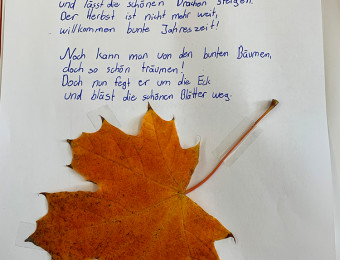 und lässt die schönen Drachen steigen.
Der Herbst ist nicht mehr weit,
willkommen bunte Jahreszeit!
Noch kann man von den bunten Bäumen,
doch so schön träumen!
Doch nun fegt er um die Eck
und bläst die schönen Blätter weg.